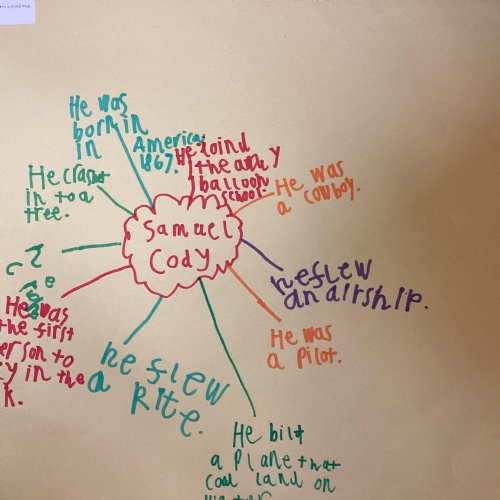 He was
born in
in America
1867.
He Joind
the army
balloon
school.
He crasht
in to a
tree.
He was
a cowboy.
Samuel
Cody
he flew
an airship.
He was
a pilot.
He was
the first
erson to
y in the
k.
he flew
a kite.
He bilt
a plane that
cod land on